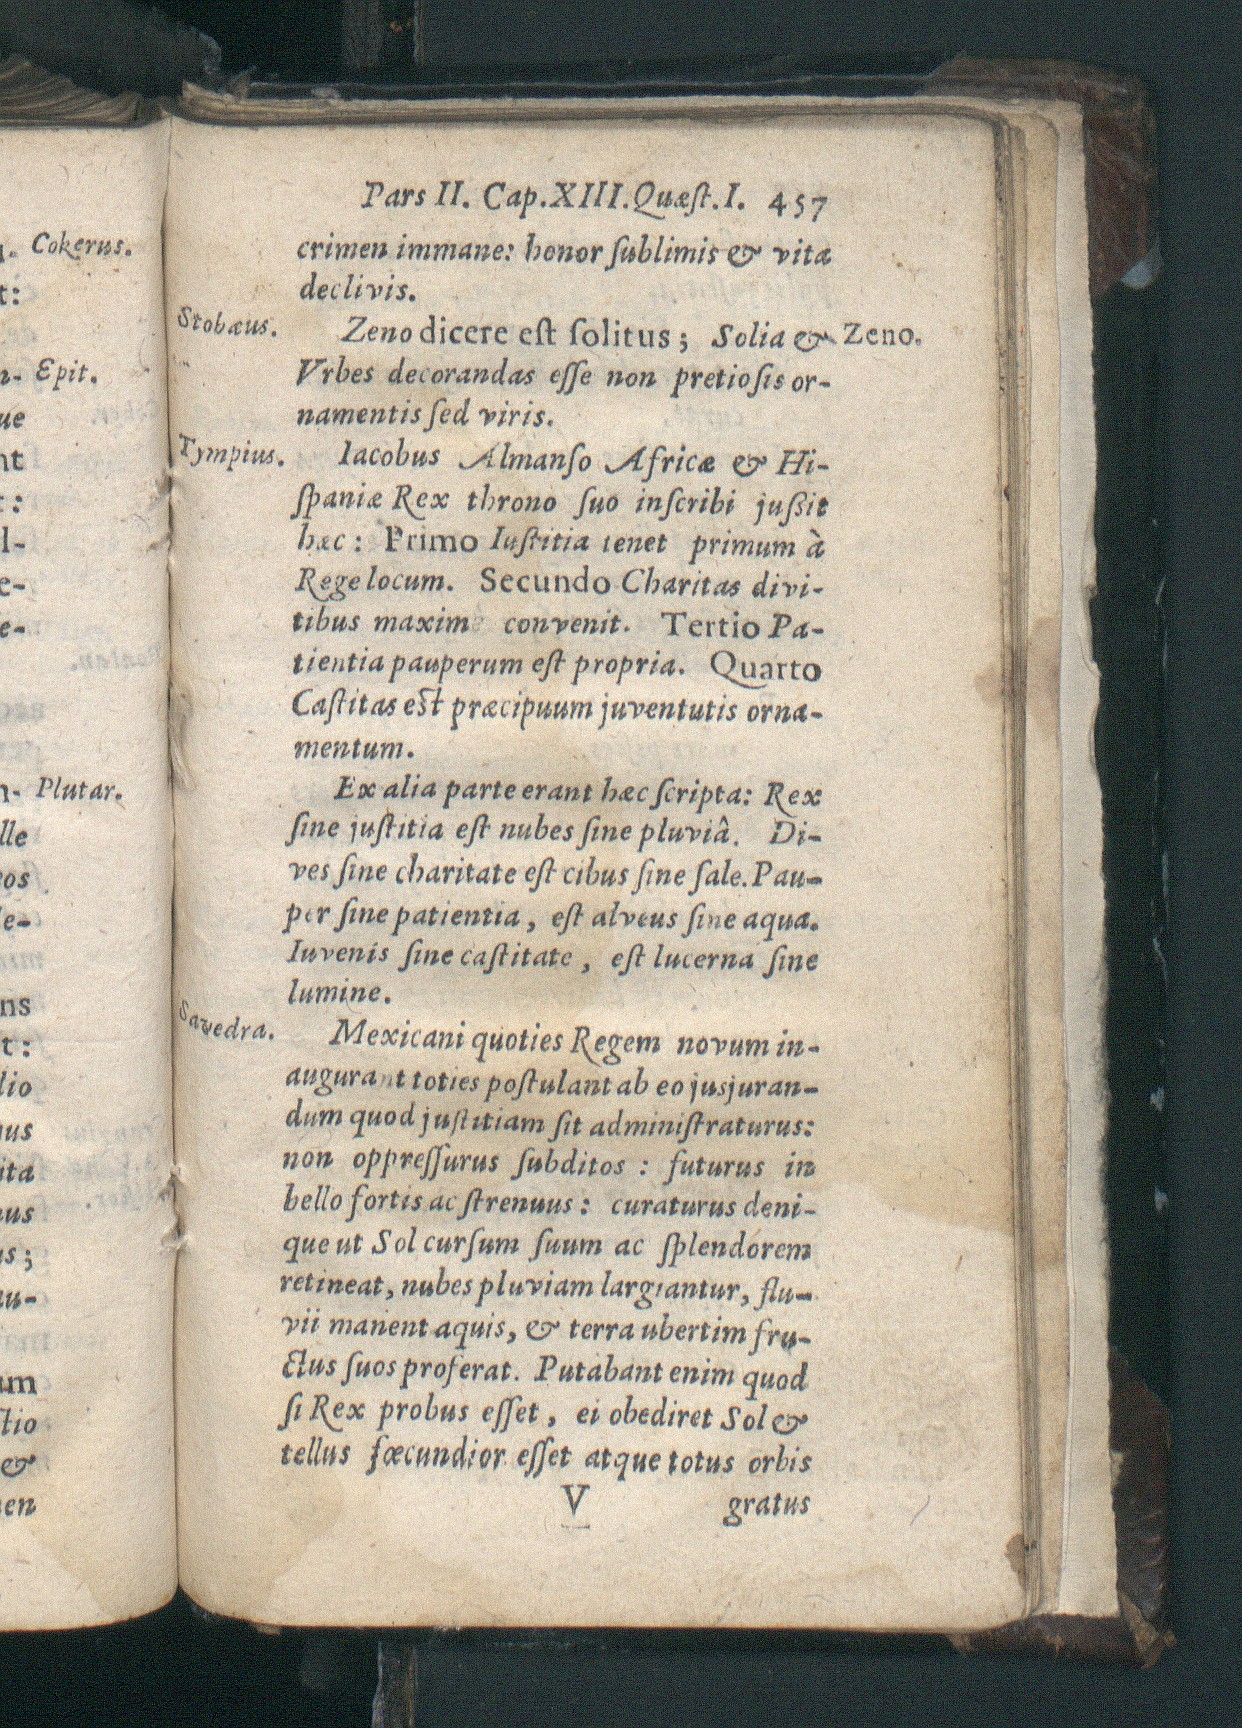 Cokerus.
t:
Epit.
ue
nt
l-
e-
e-
Plutar.
lle
ns
t:
lio
ita
um
&
Pars II. Cap.XIII.Quæſt.I. 457
crimen immane: honor ſublimis & vita
declivis.
Stobæus.
Zeno dicere eſt ſolitus; Solia & Zeno.
Vrbes decorandas eſſe non pretioſis or-
namentis ſed viris.
Tympius.
Iacobus Almanſo Africæ & Hi-
ſpaniæ Rex throno ſuo inſcribi juſſit
hæc: Primo Iuſtitia tenet primum à
Rege locum. Secundo Charitas divi-
tibus maxime convenit. Tertio Pa-
tientia pauperum eſt propria. Quarto
Caſtitas eſt præcipuum juventutis orna-
mentum.
Ex alia parte erant hæc ſcripta: Rex
ſine juſtitia eſt nubes ſine pluviâ. Di-
ves ſine charitate eſt cibus ſine ſale. Pau-
per ſine patientia, eſt alveus ſine aqua.
Iuvenis ſine caſtitate, eſt lucerna ſine
lumine.
Savedra.
Mexicani quoties Regem novum in-
augurant toties poſtulant ab eo jusjuran-
dum quod juſtitiam ſit adminiſtraturus:
non oppreſſurus ſubditos: futurus in
bello fortis ac ſtrenuus: curaturus deni-
que ut Sol curſum ſuum ac ſplendorem
retineat, nubes pluviam largiantur, flu-
vii manent aquis, & terra ubertim fru-
ctus ſuos proferat. Putabant enim quod
ſi Rex probus eſſet, ei obediret Sol &
tellus fœcundior eſſet atque totus orbis
V gratus